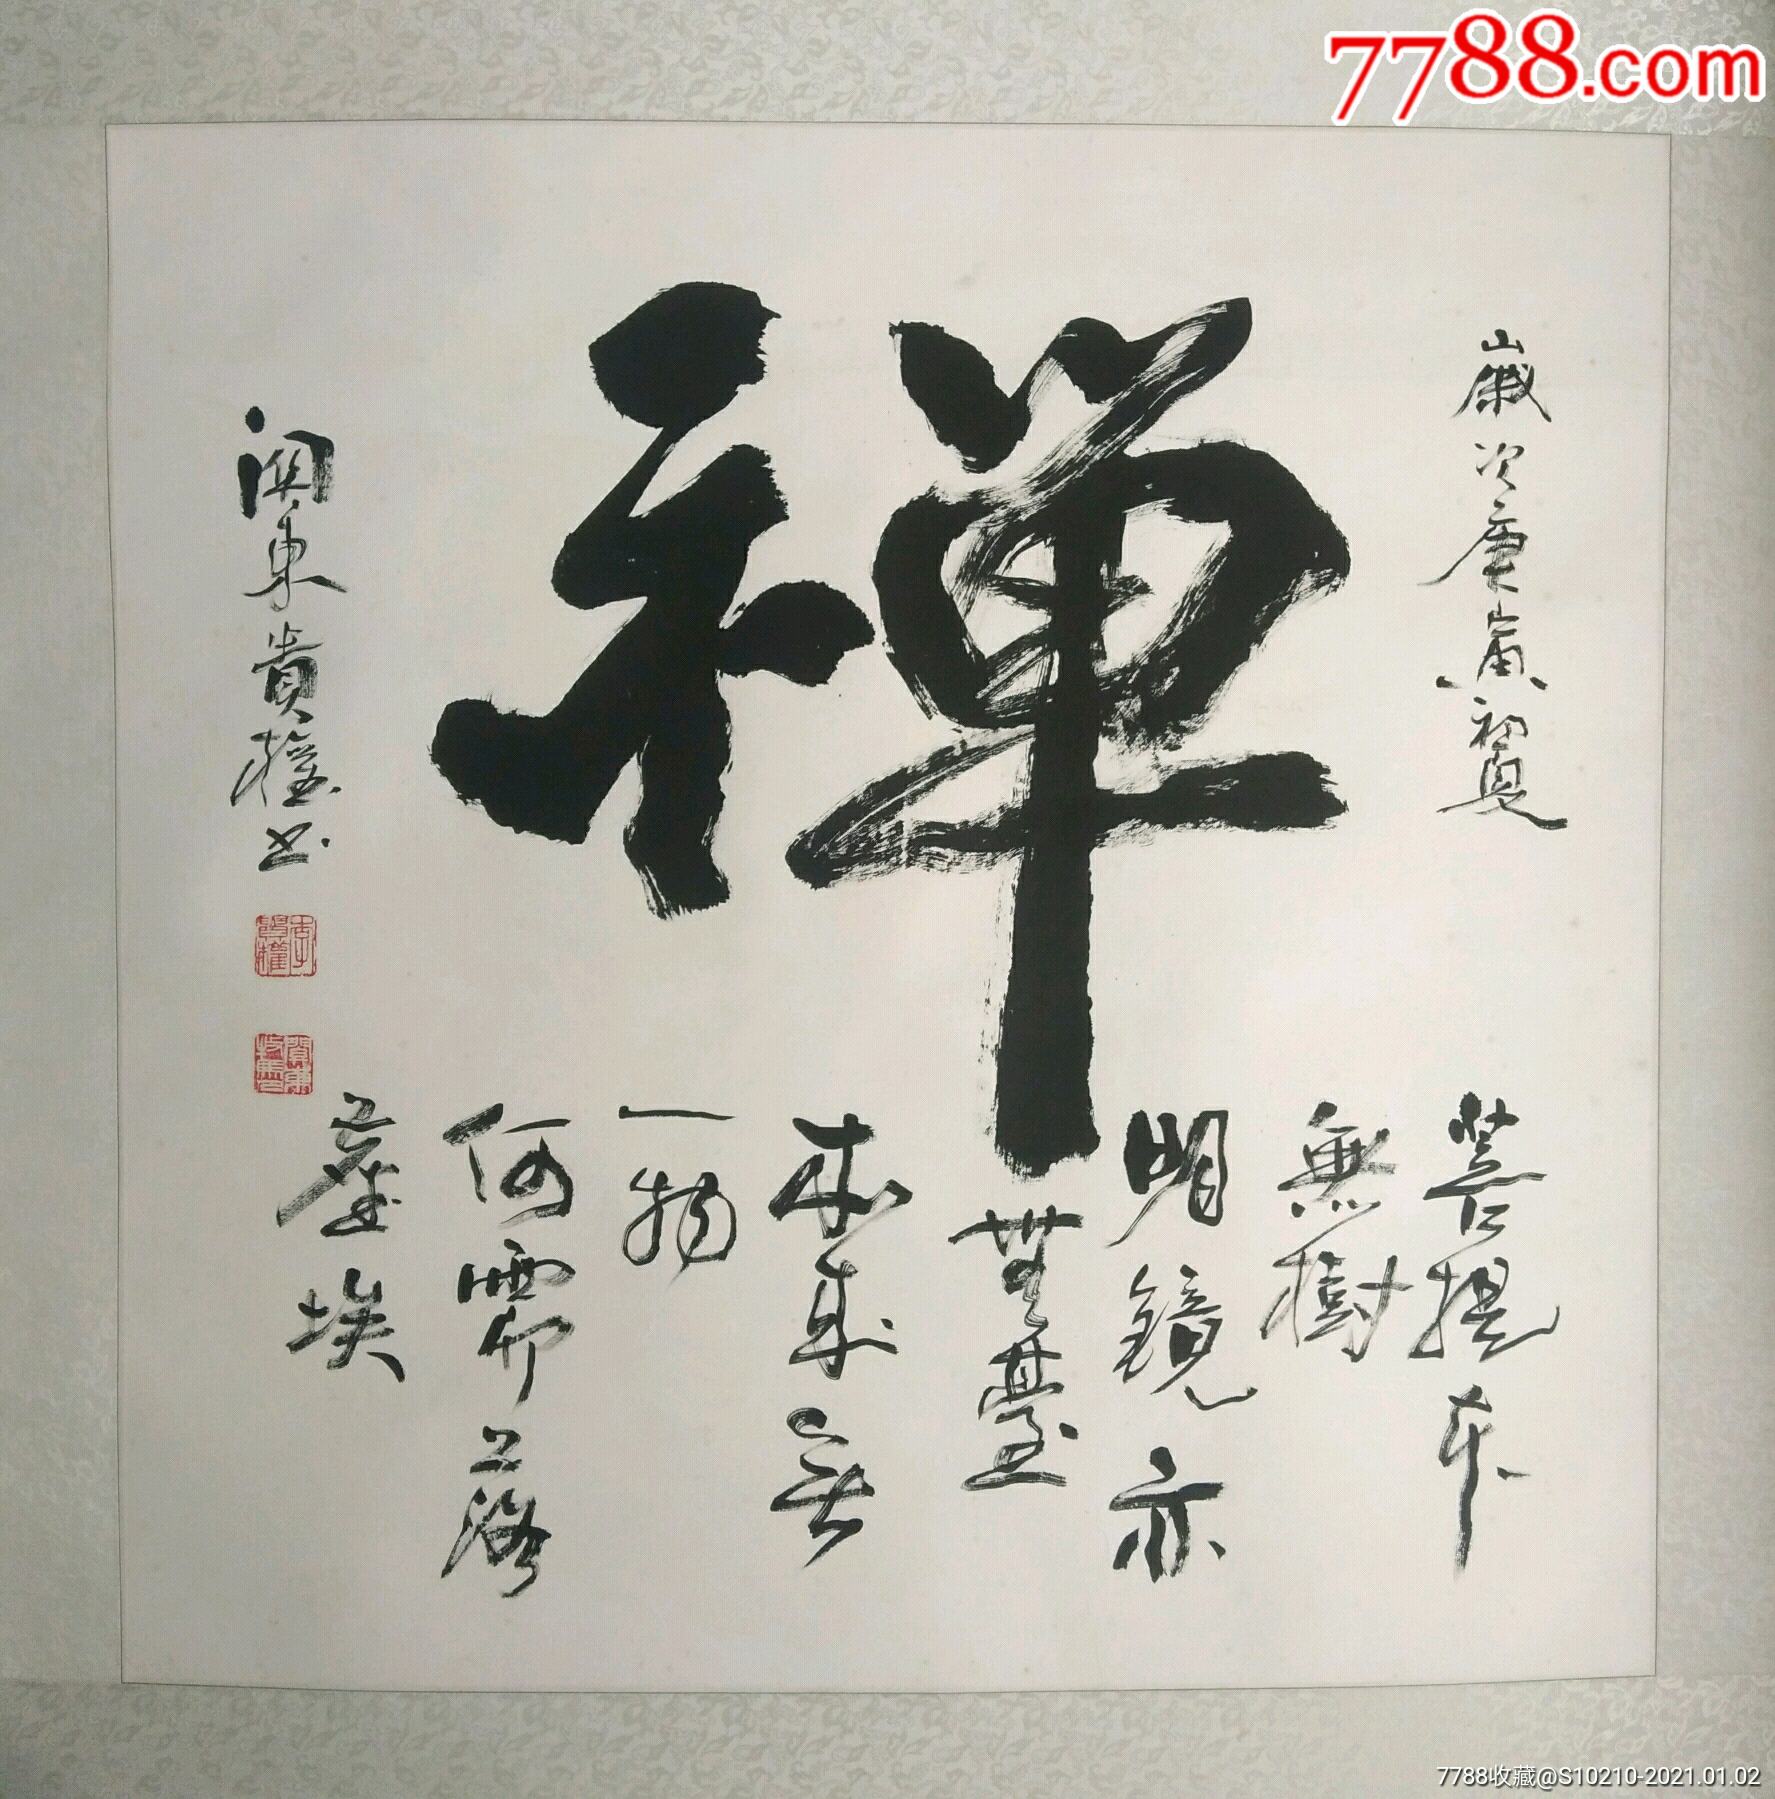 7788.com
歲次庚寅初夏
禅
菩提本
無樹
明鏡亦
無臺
本来无
一物
何需落
塵埃
関東貴權书
李貴權
7788收藏@S10210-2021.01.02